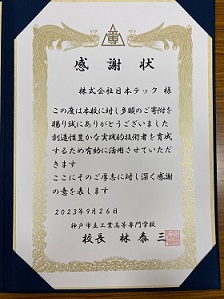 感謝状
株式会社日本テック 様
この度は本校に対し多額のご寄附を
賜り誠にありがとうございました
創造性豊かな実践的技術者を育成
するため有効に活用させていただ
きます
ここにそのご厚志に対し深く感謝
の意を表します
2023年9月26日
神戸市立工業高等専門学校
校長 林 泰三